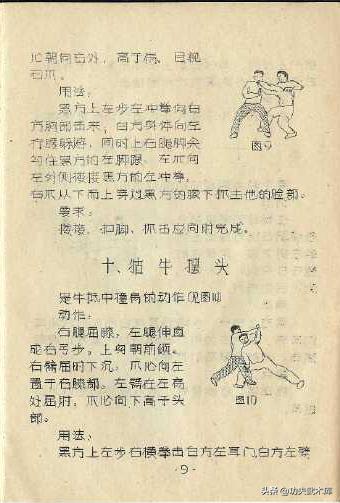 心朝向右外，高于病，目视
右爪。
用法：
黑方上左步左冲拳向白
方胸部击来，白方身体向左
拧腰躲游，同时上右腿脚尖
勾住黑方的左脚跟，左爪向
左外侧搂接黑方的左冲拳，
右爪以下而上穿过黑方的腋下抓击他的脸部。
要求：
搂接、扣脚、抓击应同时完成。
图9
十、牯牛摆头
是牛抵中撞角的动作（见图10）
动作：
右腿屈膝，左腿伸直
成右弓步，上身朝前倾。
右臂屈肘下沉，爪心向左
置于右膝部。左臂在左高
处屈肘，爪心向下高于头
部。
图10
用法：
黑方上左步右横拳击白方左耳门，白方左臂
·9·
头条@功夫武术库